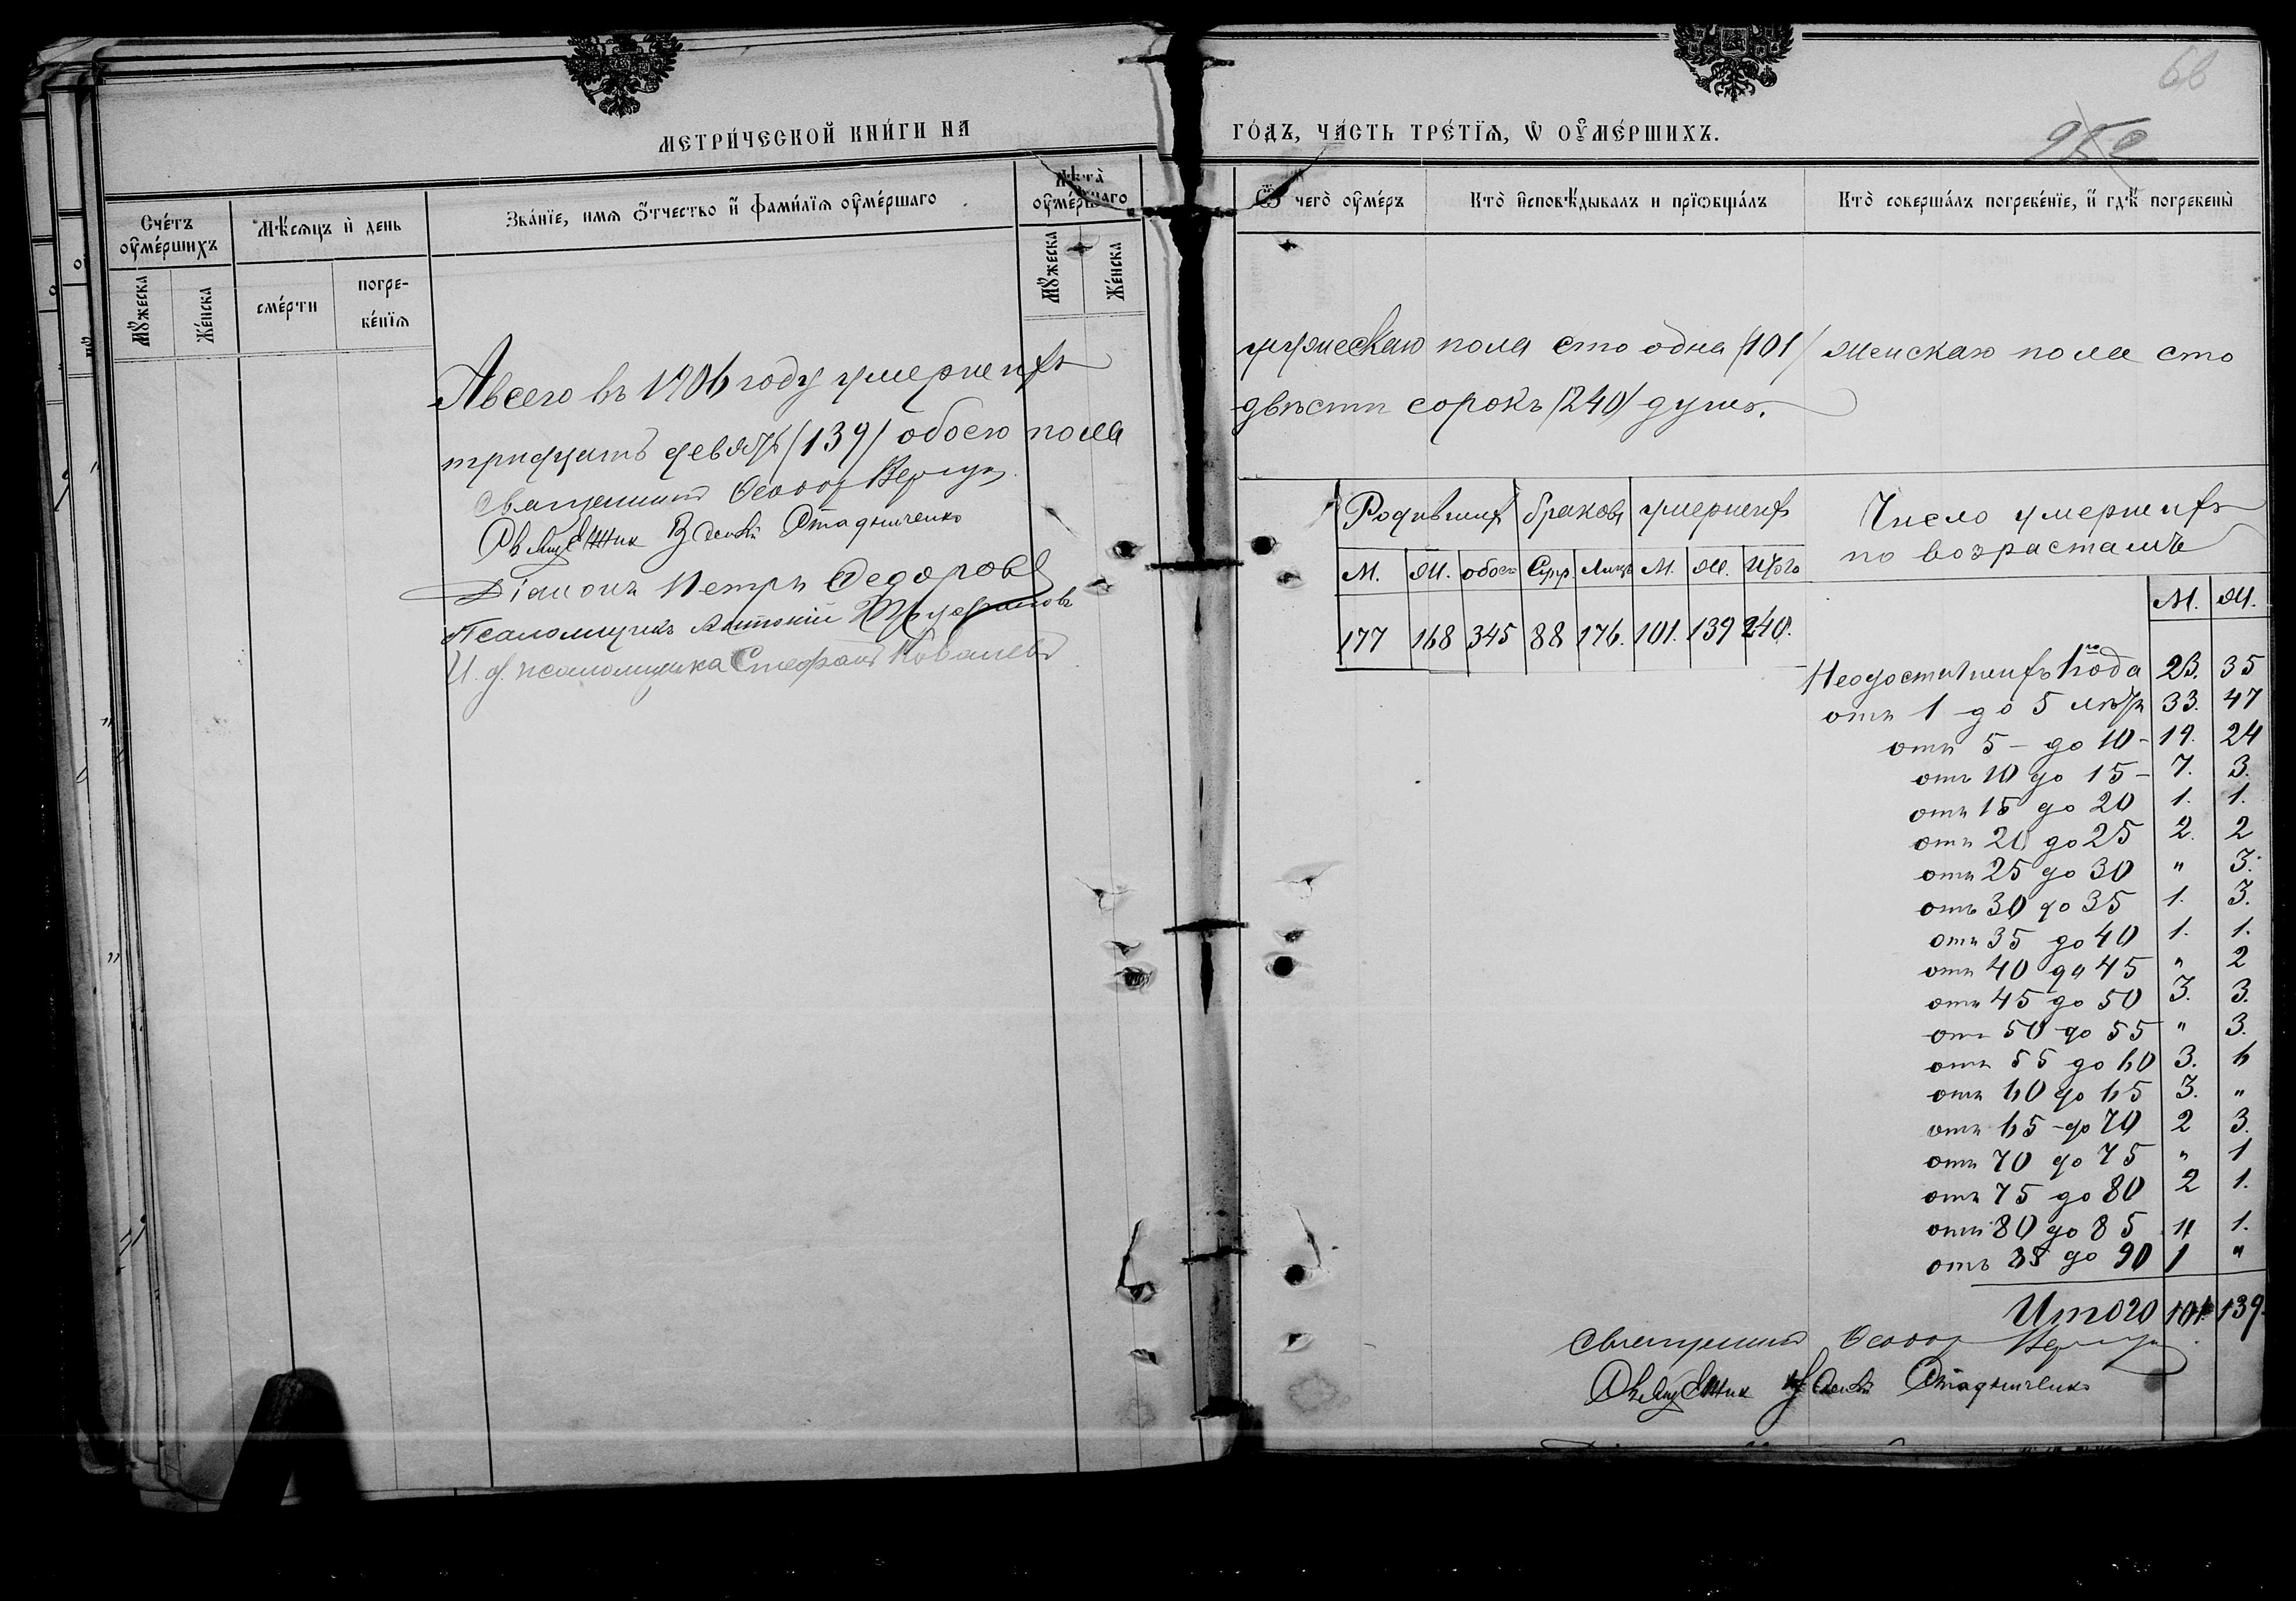 МЕТРИ́ЧЕСКОЙ КНИ́ГИ НА
ГО́ДЪ, ЧА́СТЬ ТРЕ́ТЇѦ, Ѡ ОУ҆МЕ́РШИХЪ.
Сче́тъ оу҆ме́ршихъ
Мѣ́сѧцъ и҆ день
Зва́нїе, имѧ ѻ҆́тчество и҆ фами́лїѧ оу҆ме́ршаго
Лѣта̀ оу҆ме́ршаго
Ѿ чего̀ оу҆ме́ръ
Кто̀ и҆сповѣ́дывалъ и прїѡбща́лъ
Кто̀ соверша́лъ погребе́нїе, и҆ гдѣ̀ погребены̀
Мꙋ́жеска
Же́нска
сме́рти
погребе́нїѧ
Мꙋ́жеска
Же́нска
66
252
А всего въ 1906 году умершихъ мужескаго пола сто одна /101/ женскаго пола сто
тридцать девять /139/ обоего пола двѣсти сорокъ /240/ душъ.
Священникъ Ѳеодоръ
Священникъ Стадниченко
Діаконъ Петръ Федоровъ
Псаломщикъ Антоній
И. д. псаломщика Стефанъ Ковалевъ
Родившихся браковъ умершихъ
М. Ж. обоего Супр. Лицъ М. Ж. Итого
177 168 345 88 176. 101. 139 240.
Число умершихъ
по возрастамъ
М. Ж.
Недостигшихъ 1го года 23. 35
отъ 1 до 5 лѣтъ 33. 47
отъ 5 – до 10 – 19. 24
отъ 10 до 15 – 7. 3.
отъ 15 до 20 1. 1.
отъ 20 до 25 2. 2
отъ 25 до 30 " 3.
отъ 30 до 35 1. 3.
отъ 35 до 40 1. 1.
отъ 40 до 45 " 2
отъ 45 до 50 3. 3.
отъ 50 до 55 " 3.
отъ 55 до 60 3. 6
отъ 60 до 65 3. "
отъ 65 – до 70 2 3.
отъ 70 до 75 " 1
отъ 75 до 80 2 1.
отъ 80 до 85 " 1.
отъ 85 до 90 1 "
Итого 101. 139.
Священникъ Ѳеодоръ
Священникъ Стадниченко